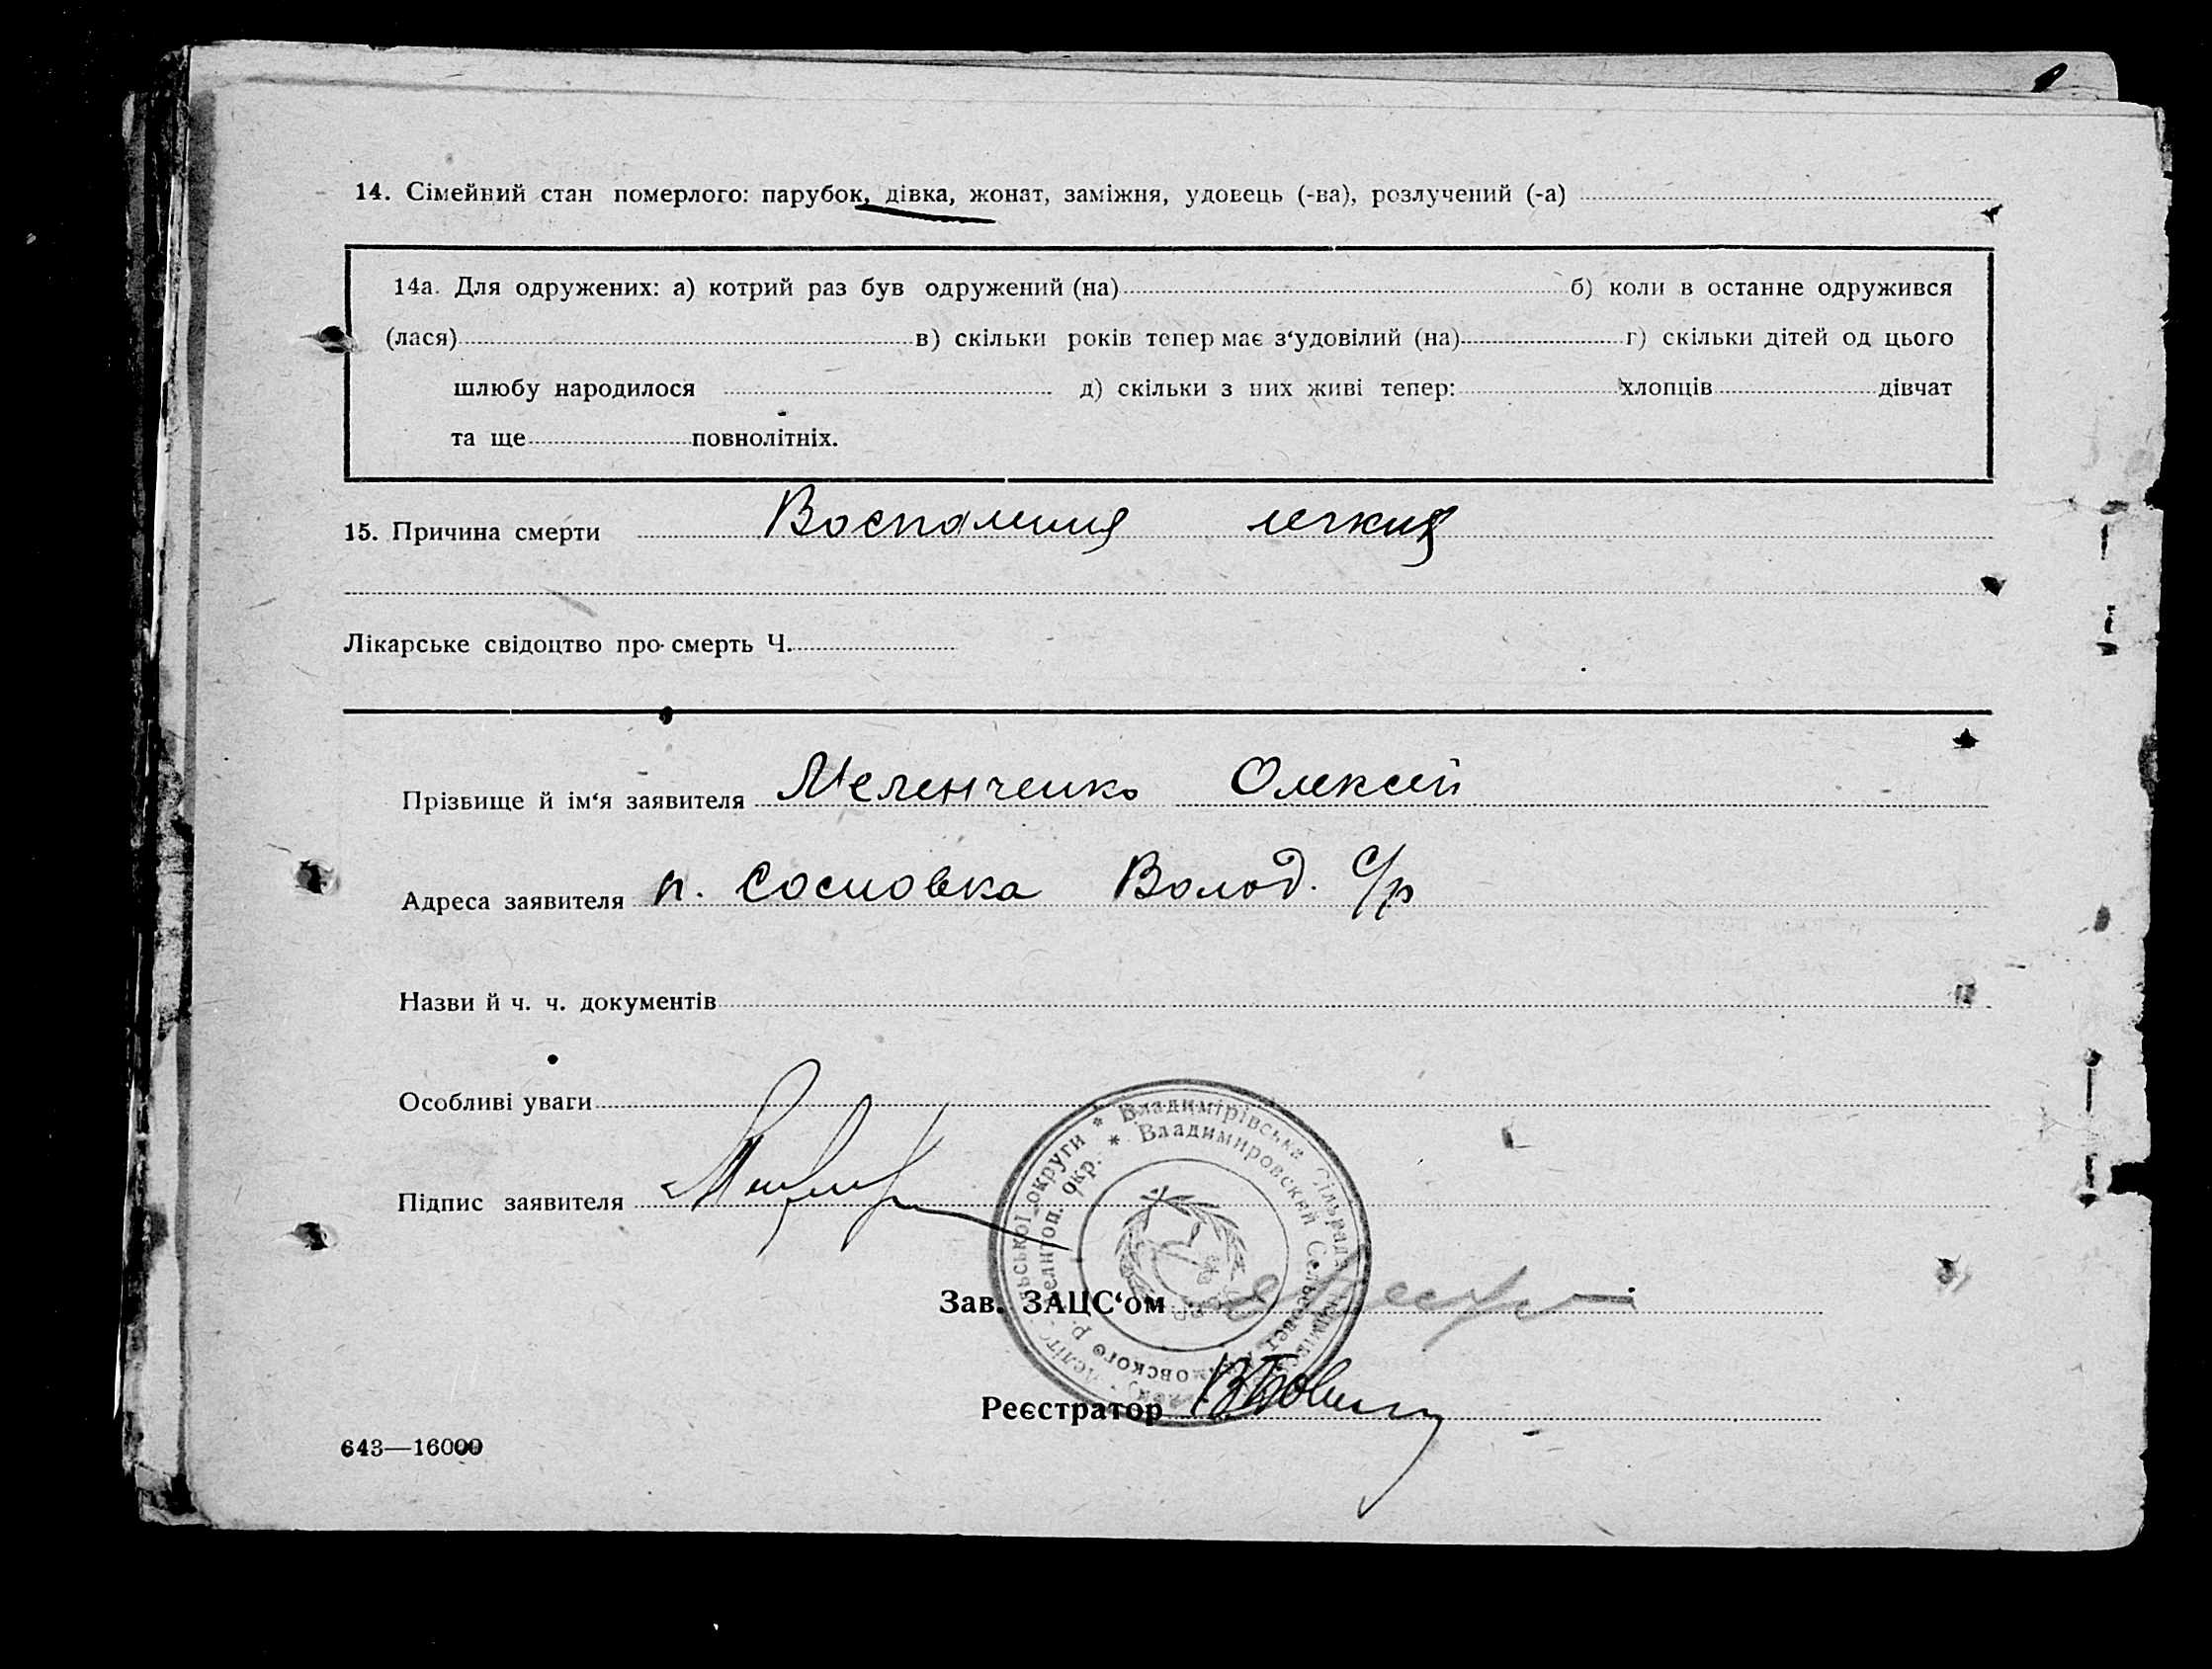 14. Сімейний стан померлого: парубок, дівка, жонат, заміжня, удовець (-ва), розлучений (-а)
14а. Для одружених: а) котрий раз був одружений (на) б) коли в останне одружився
(лася) в) скільки років тепер має з‘удовілий (на) г) скільки дітей од цього
шлюбу народилося д) скільки з них живі тепер: хлопців дівчат
та ще повнолітніх.
15. Причина смерти Воспаления легких
Лікарське свідоцтво про смерть Ч.
Прізвище й ім‘я заявителя Меленченко Олексей
Адреса заявителя п. Сосновка Волод. С/р
Назви й ч. ч. документів
Особливі уваги
Підпис заявителя
округи * Владимірівська Сільрада
окр. * Владимировский Сельсовет
Зав. ЗАЦС‘ом
Реєстратор
643—16000